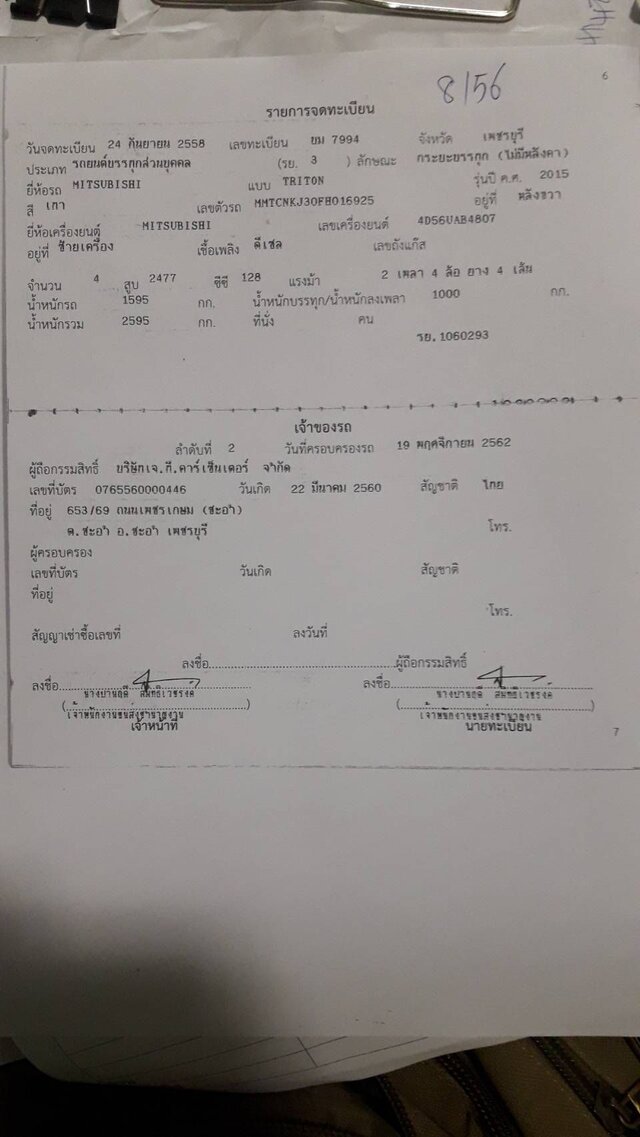 8/56
6
รายการจดทะเบียน
วันจดทะเบียน 24 กันยายน 2558 เลขทะเบียน ยม 7994 จังหวัด เพชรบุรี
ประเภท รถยนต์บรรทุกส่วนบุคคล (รย. 3 ) ลักษณะ กระบะบรรทุก (ไม่มีหลังคา)
ยี่ห้อรถ MITSUBISHI แบบ TRITON รุ่นปี ค.ศ. 2015
สี เทา เลขตัวรถ MMTCNKJ30FH016925 อยู่ที่ หลังขวา
ยี่ห้อเครื่องยนต์ MITSUBISHI เลขเครื่องยนต์ 4D56UAB4807
อยู่ที่ ซ้ายเครื่อง เชื้อเพลิง ดีเซล เลขถังแก๊ส
จำนวน 4 สูบ 2477 ซีซี 128 แรงม้า 2 เพลา 4 ล้อ ยาง 4 เส้น
น้ำหนักรถ 1595 กก. น้ำหนักบรรทุก/น้ำหนักลงเพลา 1000 กก.
น้ำหนักรวม 2595 กก. ที่นั่ง คน
รย.1060293
เจ้าของรถ
ลำดับที่ 2 วันที่ครอบครองรถ 19 พฤศจิกายน 2562
ผู้ถือกรรมสิทธิ์ บริษัทเจ.ที.คาร์เซ็นเตอร์ จำกัด
เลขที่บัตร 0765560000446 วันเกิด 22 มีนาคม 2560 สัญชาติ ไทย
ที่อยู่ 653/69 ถนนเพชรเกษม (ชะอำ)
ต.ชะอำ อ.ชะอำ เพชรบุรี โทร.
ผู้ครอบครอง
เลขที่บัตร วันเกิด สัญชาติ
ที่อยู่
โทร.
สัญญาเช่าซื้อเลขที่ ลงวันที่
ลงชื่อ ผู้ถือกรรมสิทธิ์
ลงชื่อ ลงชื่อ
เจ้าพนักงานขนส่งชำนาญงาน เจ้าพนักงานขนส่งชำนาญงาน
เจ้าหน้าที่ นายทะเบียน
7